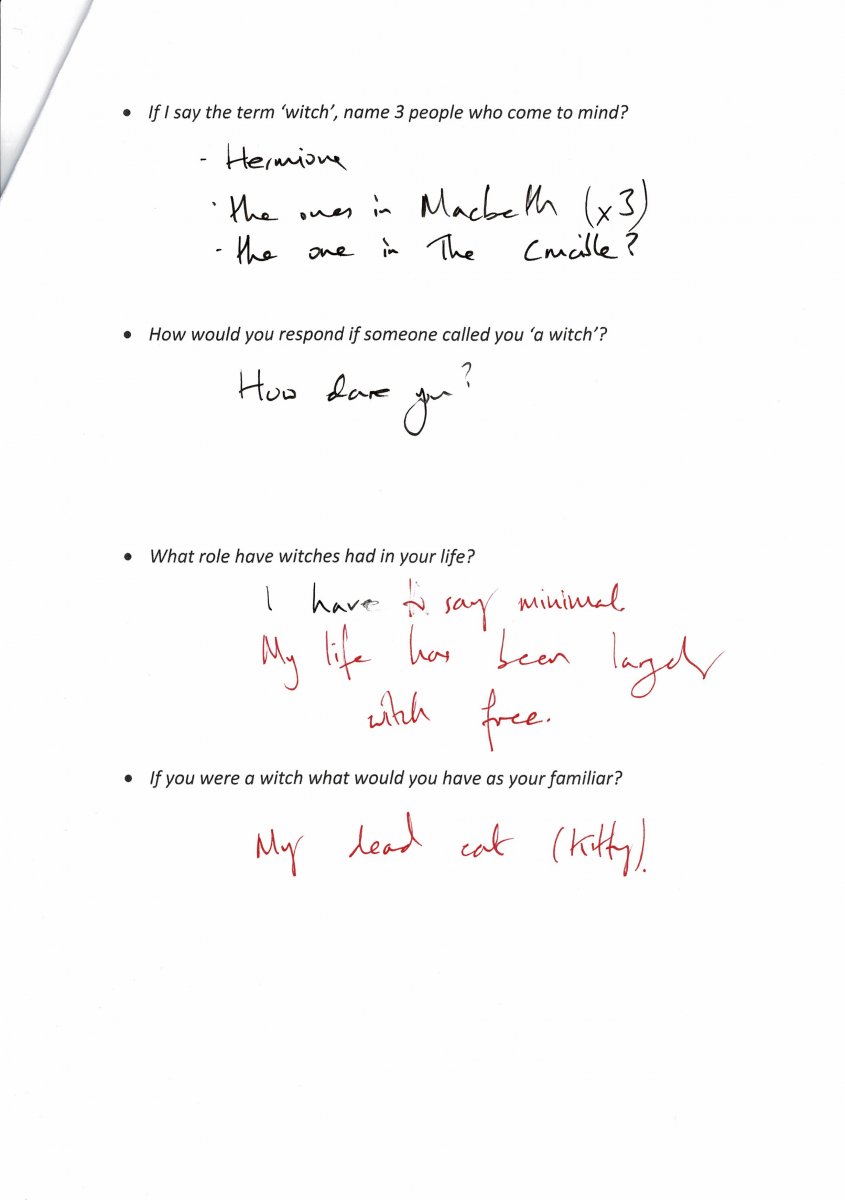 • If I say the term ‘witch’, name 3 people who come to mind?
- Hermione
· the ones in Macbeth (x3)
- the one in The Crucible?
• How would you respond if someone called you ‘a witch’?
How dare you?
• What role have witches had in your life?
I have to say minimal
My life has been largely
witch free.
• If you were a witch what would you have as your familiar?
My dead cat (Kitty).